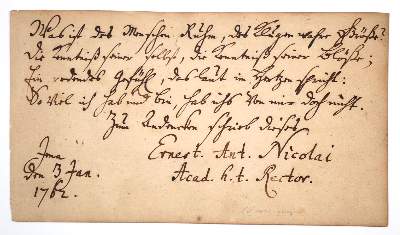 Was ist des Menschen Ruhm, des Klugen wahre Größe?
Die Kenntniß seiner selbst, die Kenntniß seiner Blöße;
Ein redendes Gefühl, das laut im Herzen spricht:
So viel ich hab und bin, hab ichs von mir doch nicht.
Zum Andencken schrieb dieses
Jena Ernest. Ant. Nicolai
den 3 Jan. Acad. h. t. Rector.
1762.